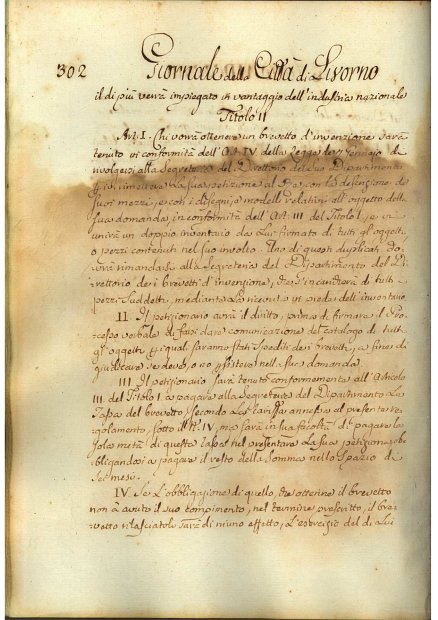 302 Giornale della Città di Livorno
il di più verrà impiegato in vantaggio dell'industria nazionale
Titolo II
Art. I. Chi vorrà ottenere un brevetto d'invenzione sarà
tenuto in conformità dell'Art IV della Legge de 7 Gennajo di
rivolgersi alla Segreteria del Direttorio del suo Dipartimento
per rimettere la sua petizione al con la descrizione de
suoi mezzi, e con i disegni, o modelli relativi all'oggetto della
sua domanda, in conformità dell'Art. III del Titolo I, e vi
unirà un doppio inventario da Lui firmato di tutti gl'oggetti
o pezzi contenuti nel suo involto. Uno di questi duplicati do-
vrà rimandarsi alla Segreteria del Dipartimento del Di-
rettorio de i brevetti d'invenzione, che s'incaricherà di tutti i
pezzi suddetti, mediante la ricevuta in piede dell'inventario
II. Il petizionario avrà il diritto, prima di firmare il Pro-
cesso verbale di farsi dare comunicazione del catalogo di tutti
gl'oggetti per i quali saranno stati spediti dei brevetti, a fine di
giudicare se deve, o no persistere nella sua domanda.
III. Il petizionario sarà tenuto conformemente all'Articolo
III del Titolo I a pagare alla Segreteria del Dipartimento la
Tassa del brevetto, secondo la tariffa annessa al presente re-
golamento, sotto il N. IV, ma sarà in sua facoltà di pagare la
sola metà di questa tassa nel presentare la sua petizione, ob-
bligandosi a pagare il resto della somma nello spazio di
sei mesi.
IV Se l'obbligazione di quello, che ottenne il brevetto
non à avuto il suo compimento, nel termine prescritto, il bre-
vetto rilasciatoli sarà di niuno effetto, l'esercizio del di Lui